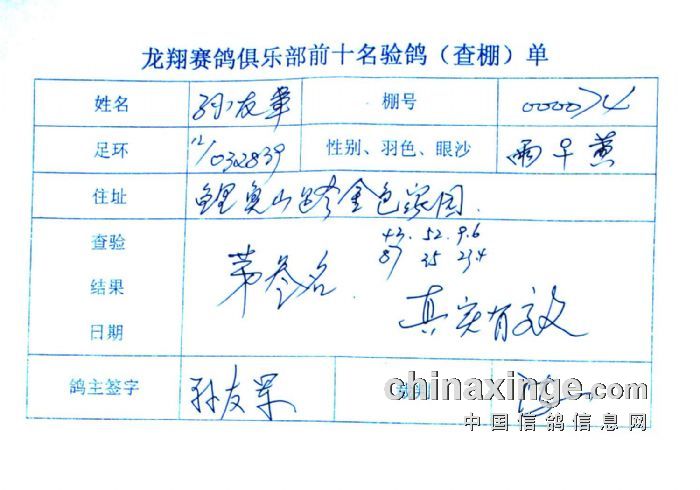 龙翔赛鸽俱乐部前十名验鸽（查棚）单
姓名 孙友军 棚号 0000074
足环 12/032839 性别、羽色、眼沙 雨白黄
住址 鲤鱼山路金色家园.
查验
结果
日期
第叁名
43. 52. 9.6
87 35 234
真实有效
鸽主签字 孙友军 裁判
chinaxinge.com
中国信鸽信息网